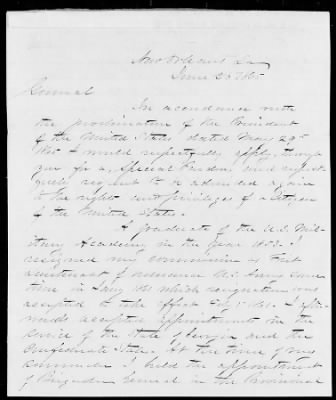 New Orleans La
June 23d 1865
General
In accordance with
the proclamation of the President
of the United States dated May 29th
1865 I would respectfully apply, through
you for a Special Pardon, and
request to be admitted again
to the rights and privileges of a Citizen
of the United States.
A graduate of the U.S. Mil-
itary Academy in the year 1853. I
resigned my commission as First
Lieutenant of U.S. Army some
time in 1861 which resignation was
accepted to take effect 1861. I
accepted appointment in the
service of the State of Georgia and the
Confederate States. At the time of
surrender I held the appointment
of Brigadier General in the Provisional